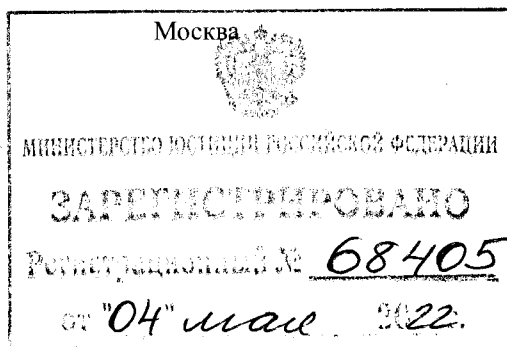 Москва
МИНИСТЕРСТВО ЮСТИЦИИ РОССИЙСКОЙ ФЕДЕРАЦИИ
ЗАРЕГИСТРИРОВАНО
Регистрационный № 68405
от "04" мая 2022.